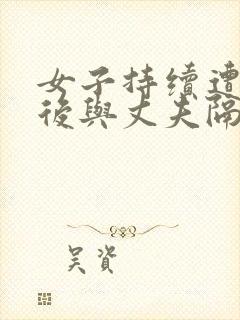 女子持續遭
後與丈夫隔
吴资